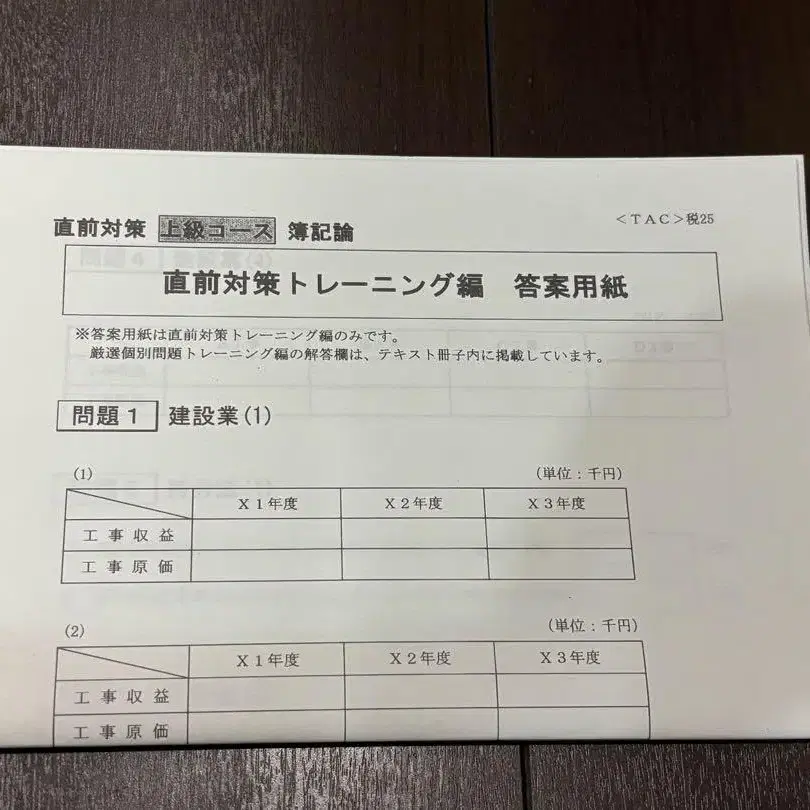 <TAC>税25
直前対策 上級コース 簿記論
直前対策トレーニング編 答案用紙
※答案用紙は直前対策トレーニング編のみです。
厳選個別問題トレーニング編の解答欄は、テキスト冊子内に掲載しています。
問題1 建設業(1)
(1) (単位:千円)
X1年度 X2年度 X3年度
工事収益
工事原価
(2) (単位:千円)
X1年度 X2年度 X3年度
工事収益
工事原価